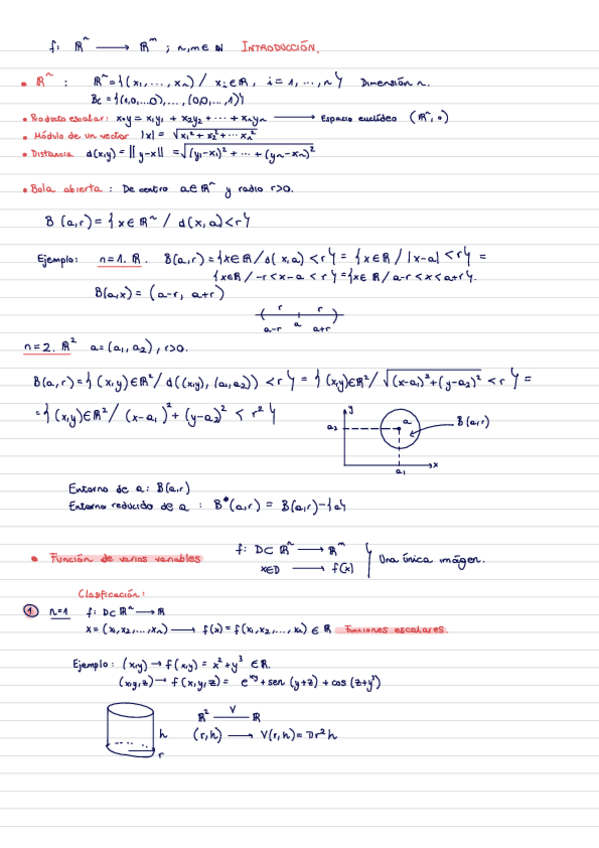 f: ℝⁿ ⟶ ℝᵐ ; n,m ∈ ℕ INTRODUCCIÓN.
• ℝⁿ : ℝⁿ = {(x₁, ..., xₙ) / xᵢ ∈ ℝ, i = 1, ..., n} Dimensión n.
Bc = {(1,0,...0), ..., (0,0,...,1)}
• Producto escalar: x∘y = x₁y₁ + x₂y₂ + ... + xₙyₙ ⟶ Espacio euclídeo (ℝⁿ, ∘)
• Módulo de un vector |x| = √(x₁² + x₂² + ... xₙ²)
• Distancia d(x,y) = ‖y-x‖ = √((y₁-x₁)² + ... + (yₙ-xₙ)²)
• Bola abierta : De centro a∈ℝⁿ y radio r>0.
B (a,r) = {x ∈ ℝⁿ / d(x,a) < r}
Ejemplo: n=1. ℝ. B(a,r) = {x∈ℝ / d(x,a) < r} = {x∈ℝ / |x-a| < r} =
{x∈ℝ / -r < x-a < r} = {x∈ℝ / a-r < x < a+r}.
B(a,x) = (a-r, a+r)
r r
a-r a a+r
n=2. ℝ² a=(a₁,a₂), r>0.
B(a,r) = {(x,y)∈ℝ² / d((x,y), (a₁,a₂)) < r} = {(x,y)∈ℝ² / √((x-a₁)²+(y-a₂)²) < r} =
= {(x,y)∈ℝ² / (x-a₁)² + (y-a₂)² < r²}
y
a₂ a B(a,r)
x
a₁
Entorno de a: B(a,r)
Entorno reducido de a : B*(a,r) = B(a,r)-{a}
• Función de varias variables f: D⊂ℝⁿ ⟶ ℝᵐ
x∈D ⟶ f(x) } Una única imágen.
Clasificación:
① n=1 f: D⊂ℝⁿ ⟶ ℝ
x = (x₁,x₂,...,xₙ) ⟶ f(x) = f(x₁,x₂,...,xₙ) ∈ ℝ Funciones escalares.
Ejemplo: (x,y) → f(x,y) = x²+y³ ∈ℝ.
(x,y,z) → f(x,y,z) = e^(xy) + sen (y+z) + cos (z+y²)
h
r
ℝ² ⟶ V ℝ
(r,h) ⟶ V(r,h) = πr²h